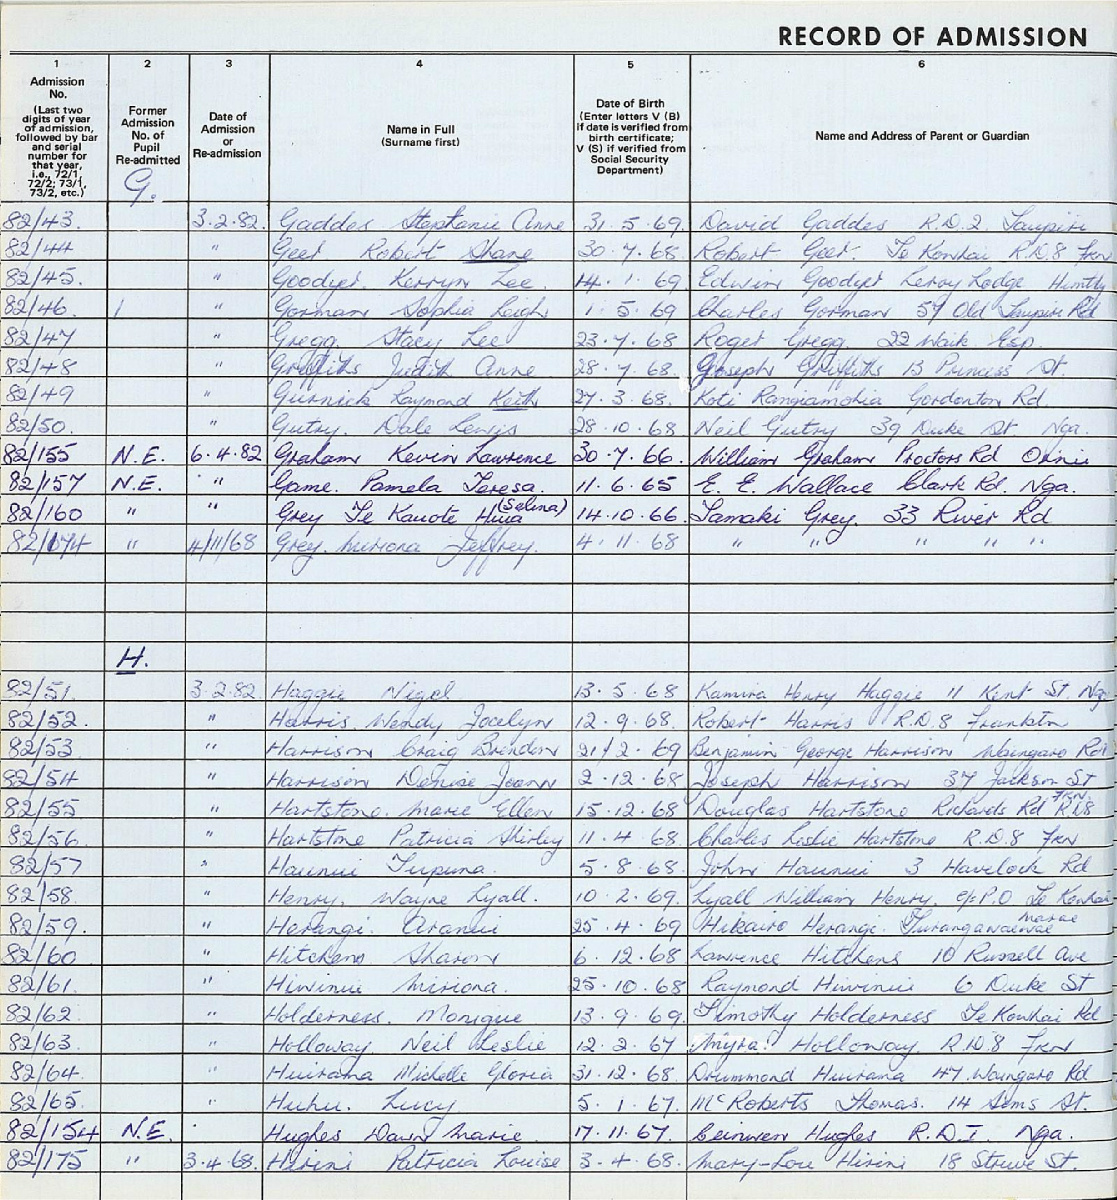 RECORD OF ADMISSION
1 2 3 4 5 6
Admission No. (Last two digits of year of admission, followed by bar and serial number for that year, i.e., 72/1, 72/2; 73/1, 73/2, etc.)
Former Admission No. of Pupil Re-admitted
Date of Admission or Re-admission
Name in Full (Surname first)
Date of Birth (Enter letters V (B) if date is verified from birth certificate; V (S) if verified from Social Security Department)
Name and Address of Parent or Guardian
G.
82/43 3.2.82 Gaddes Stephanie Anne 31.5.69 David Gaddes R.D.2. Taupiri
82/44 " Geet Robert Shane 30.7.68 Robert Geet. Te Kowhai R.D.8 Fkn
82/45 " Goodyet. Kerryn Lee 14.1.69 Edwin Goodyet Leroy Lodge Huntly
82/46 " Gorman Sophia Leigh 1.5.69 Charles Gorman 57 Old Taupiri Rd
82/47 " Gregg. Stacy Lee 23.7.68 Roget Gregg. 22 Waik. Esp.
82/48 " Griffiths Judith Anne 28.7.68. Joseph Griffiths 13 Princess St.
82/49 " Gurnick Raymond Keith 27.3.68. Koti Rangiamohia Gordonton Rd.
82/50. " Gutry. Dale Lewis 28.10.68 Neil Gutry 39 Duke St Nga.
82/155 N.E. 6.4.82 Graham Kevin Lawrence 30.7.66. William Graham Proctors Rd Orini
82/157 N.E. " Game. Pamela Teresa. 11.6.65 E. E. Wallace Clark Rd. Nga.
82/160 " " Grey Te Kauote Huia (Selina) 14.10.66 Tamaki Grey. 33 River Rd
82/174 " 4/11/68 Grey. Jeffrey. 4.11.68 " " " " "
H.
82/51 3.2.82 Haggie Nigel 13.5.68 Kamira Henry Haggie 11 Kent St. Nga
82/52. " Harris. Wendy Jocelyn 12.9.68. Robert Harris R.D.8 Frankton
82/53 " Harrison Craig Brendon 21/2.69 Benjamin George Harrison Waingaro Rd
82/54 " Harrison Denise Joann 2.12.68 Joseph Harrison 37 Jackson St
82/55 " Hartstone. Marie Ellen 15.12.68 Douglas Hartstone Richards Rd R.D.8 Fkn.
82/56 " Hartstone Patricia Shirley 11.4.68 Charles Leslie Hartstone R.D.8 Fkn
82/57 " Haunui Tupuna. 5.8.68 John Haunui 3 Havelock Rd
82/58 " Henry. Wayne Lyall. 10.2.69. Lyall William Henry. c/- P.O Te Kowhai
82/59. " Herangi. Aranui 25.4.69 Hikairo Herangi. Turangawaewae marae
82/60 " Hitchens Sharon 6.12.68 Lawrence Hitchens 10 Russell Ave
82/61. " Hiwinui Miriona. 25.10.68 Raymond Hiwinui 6 Duke St
82/62 " Holderness. Monique 13.9.69. Timothy Holderness Te Kowhai Rd
82/63 " Holloway. Neil Leslie 12.2.67 Myra. Holloway. R.D.8 Fkn
82/64 " Huirama Michelle Gloria 31.12.68. Drummond Huirama 47 Waingaro Rd
82/65. " Huhu. Lucy 5.1.67. McRoberts Thomas. 14 Sims St.
82/154 N.E. Hughes Dawn Marie. 17.11.67. Ceinwen Hughes R.D.I. Nga.
82/175 " 3.4.68. Hirini Patricia Louise 3.4.68. Mary-Lou Hirini 18 Struve St.